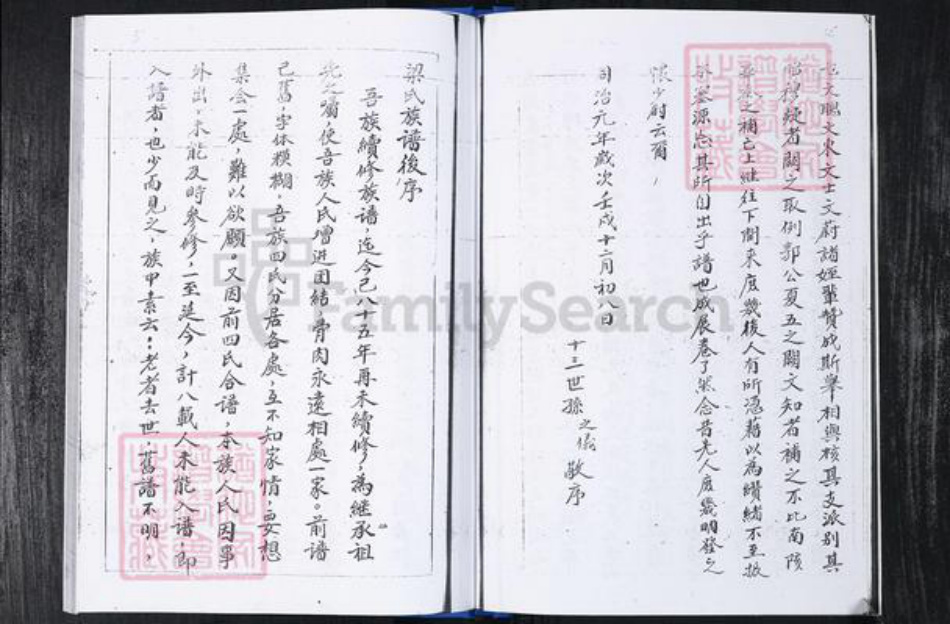 文聰文東文士文蔚諸姪輩贊成斯舉相與核其支派別其
疑者闕之取例郭公夏五之闕文知者補之不比南陔
華黍之補亡上繼往下開來庶幾後人有所憑藉以為纘緒不至披
外釜源忘其所自出乎譜也成展卷了然念昔先人庶幾明發之
懷少尉云爾
同治元年歲次壬戌十二月初八日
十三世孫之儀敬序
梁氏族譜後序
吾族續修族譜，迄今已八十五年再未續修，為繼承祖
先之囑，使吾族人民增進团結，骨肉永遠相處一家。前譜
已舊，字体模糊，吾族四氏分居各處，互不知家情，要想
集会一處，難以欲願。又因前四氏合譜，本族人民因事
外出，未能及時參修，一至延今，計八載人未能入譜，即
入譜者，也少而見之，族中素云：老者去世，舊譜不明，
FamilySearch